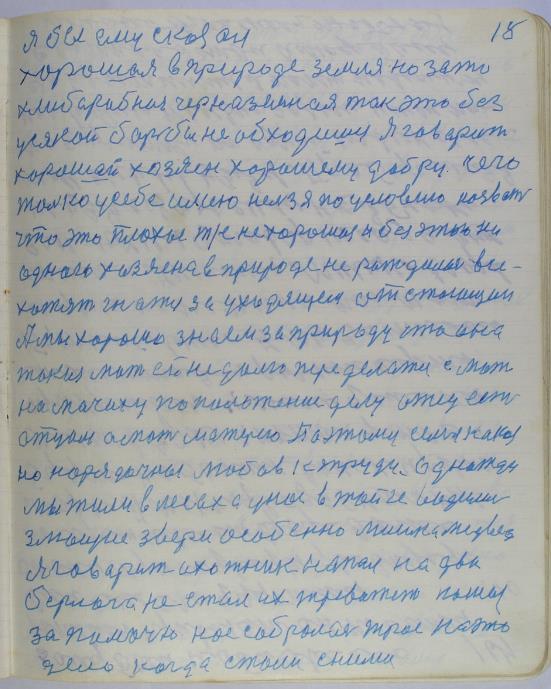 18
я бы ему сказал
хорошая в природе земля но зато
хлибаробная черназемная так это без
усякой борьбы не обходиш я говарит
хорошай хозяен хорошему добру. чего
только усебе имею нельзя по условию назват
что это плохое т/е не хорошая и без этого ни
одного хозяена в природе не рождалися все-
хотят гнати за уходящем отстоющии
А мы хорошо знаем за природу что она
такая мат ей не долго переделати с мат
на мачиху по положение делу отец есть
отцом а мат матерю Поэтому семя какая
но нарядочная любов к труду. Однажди
мы жили в лесах а унас в тайге водили
злющие звери особенно мишка медвед
я говарит охотник напал на два
берлога не стал их тревожит пошол
за помочю нас собралося трое на это
дело когда стали сними